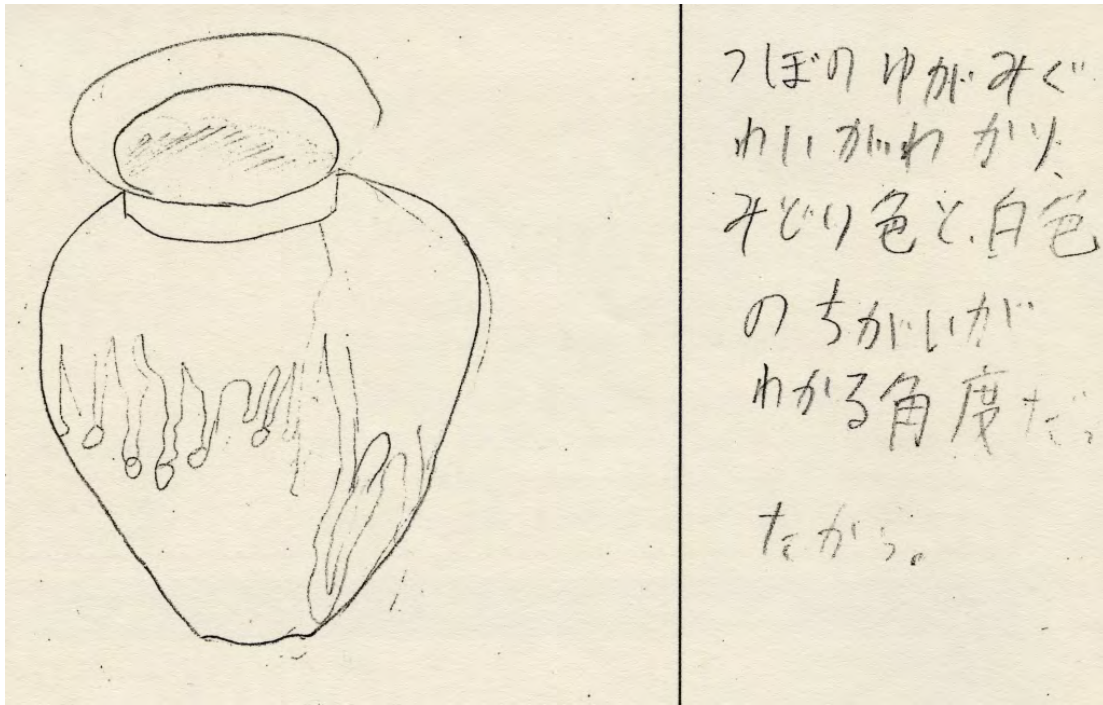 つぼのゆがみぐ
わいがわかり、
みどり色と、白色
のちがいが
わかる角度だっ
たから。